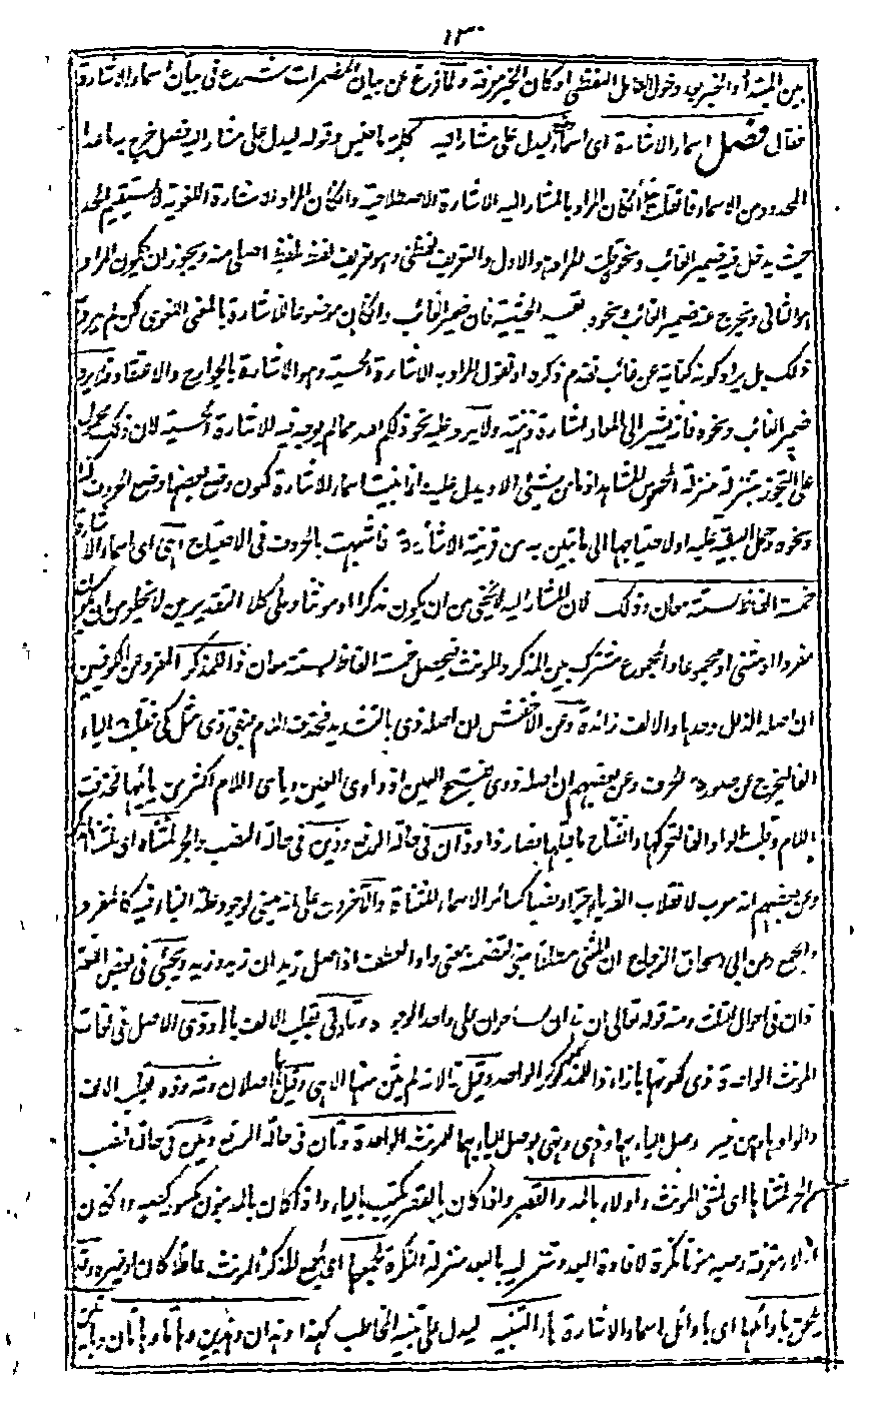 ١٣٠
بين المبتدأ والخبر بعد دخول العامل اللفظي او كان الخبر معرفة ولما فرغ عن بيان المضمرات شرع في بيان اسماء الاشارة
فقال فصل اسماء الاشارة اى اسماء ليدل على مشار اليه كلمة ما جنس وقوله ليدل على مشار اليه فصل خرج به ما عدا
المحدود من الاسماء فان قلت ان كان المراد بالمشار اليه الاشارة الاصطلاحية وان كان المراد الاشارة اللغوية لا يستقيم الحد
حيث يدخل فيه ضمير الغائب ونحوه قلت المراد هو الاول والتعريف لفظي وهو تعريف لفظ بلفظ اصلى منه ويجوز ان يكون المراد
هو الثاني ويخرج عنه ضمير الغائب ونحوه بقيد الحيثية فان ضمير الغائب وان كان موضوعا للاشارة بالمعنى اللغوى لكن لم يرد
ذلك بل يراد كونه كناية عن غائب تقدم ذكره او تقول المراد به الاشارة الحسية وهو الاشارة بالجوارح والاعضاء فلا يرد
ضمير الغائب ونحوه فانه يشير الى المعاد اشارة ذهنية ولا يرد عليه نحو ذلكم الله مما لم يوجد فيه الاشارة الحسية لان ذلك محمول
على التجوز بتنزيله منزلة المحسوس المشاهد اذ ما من شئ الا ويدل عليه انما بنيت اسماء الاشارة لكون وضع بعضها وضع الحروف
ونحوه وحمل البقية عليه او لاحتياجها الى ما تبين به من قرينة الاشارة فاشبهت بالحروف فى الاحتياج وهى اى اسماء الاشارة
خمسة الفاظ لستة معان وذلك لان المشار اليه لا يخلى من ان يكون مذكرا او مونثا وعلى كلا التقديرين لا يخلو من ان يكون
مفردا او مثنى او مجموعا والمجموع مشترك بين المذكر والمونث فيحصل خمسة الفاظ لستة معان ذا للمذكر المفرد وعن الكوفيين
ان اصله الذال وحدها والالف زائدة وعن الاخفش ان اصله ذى بالتشديد فحذفت اللام فبقى ذى مثل كى فقلبت الياء
الفا ليخرج عن صورة الحرف وعن بعضهم ان اصله ذوى بفتح العين اذ واوى العين ويائى اللام اكثر من يائيهما فحذفت
اللام وقلبت الواو الفا لتحركها وانفتاح ما قبلها فصار ذا وذان فى حالة الرفع وذين فى حالة النصب والجر لمثناه اى لمثنى المذكر
وعن بعضهم انه معرب لانقلاب الفه ياء جرا ونصبا كسائر الاسماء المثناة والآخرون على انه مبنى لوجود علة البناء فيه كالمفرد
والجمع وعن ابى اسحاق الزجاج ان المثنى مطلقا مبنى لتضمنه معنى واو العطف اذ اصل زيدان زيد وزيد ويجئ فى بعض اللغة
ذان فى احوال الثلث ومنه قوله تعالى ان هذان لساحران على واحد الوجوه وتا وتى بقلب الالف ياء وذى الاصل فى لغات
المونث الواحدة ذى لكونها بازاء ذا للمذكر الواحد وقيل تا لانه لم يثن منها الا هى وقيل هما اصلان وته وذه بقلب الالف
والواو هاء من غير وصل الياء بها وذهى وتهى بوصل الياء بها للمونث الواحدة وتان فى حالة الرفع وتين فى حالة النصب
والجر لمثناها اى لمثنى المونث واولاء بالمد والقصر واذا كان بالقصر يكتب بالياء واذا كان بالمد ينون كسويه وان كان
اولاء معرفة وصه منونا نكرة لافادة البعد وتنزيله بالبعد منزلة النكرة لجمعهما اى لجمع المذكر والمونث عاقلا كان او غيره وقد
يلحق باوائلها اى باوائل اسماء الاشارة هاء التنبيه ليدل على تنبيه المخاطب كهذا وهذان وهذين وهاتا وهاتان وهاتين